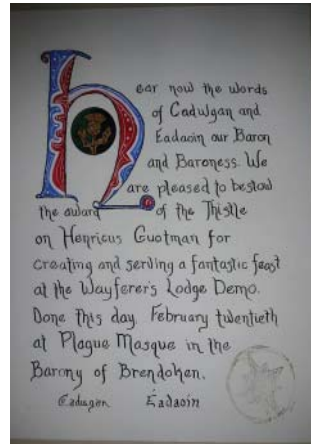 hear now the words
of Cadwlgan and
Eadaoin our Baron
and Baroness. We
are pleased to bestow
the award of the Thistle
on Henricus Guotman for
creating and serving a fantastic feast
at the Wayferer's Lodge Demo.
Done this day, February twentieth
at Plague Masque in the
Barony of Brendoken.
Cadwgan Éadaoin